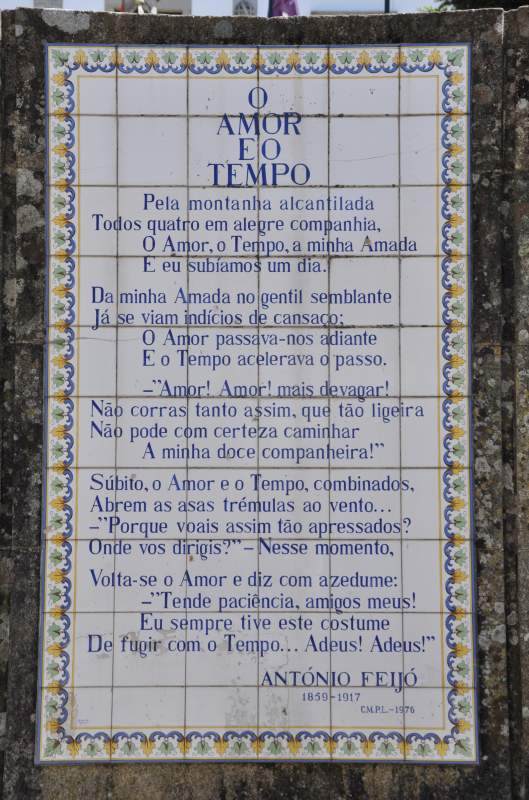 O
AMOR
E O
TEMPO
Pela montanha alcantilada
Todos quatro em alegre companhia,
O Amor, o Tempo, a minha Amada
E eu subíamos um dia.
Da minha Amada no gentil semblante
Já se viam indícios de cansaço;
O Amor passava-nos adiante
E o Tempo acelerava o passo.
–"Amor! Amor! mais devagar!
Não corras tanto assim, que tão ligeira
Não pode com certeza caminhar
A minha doce companheira!"
Súbito, o Amor e o Tempo, combinados,
Abrem as asas trémulas ao vento...
–"Porque voais assim tão apressados?
Onde vos dirigis?" – Nesse momento,
Volta-se o Amor e diz com azedume:
–"Tende paciência, amigos meus!
Eu sempre tive este costume
De fugir com o Tempo... Adeus! Adeus!"
ANTÓNIO FEIJÓ
1859-1917
C.M.P.L.-1976